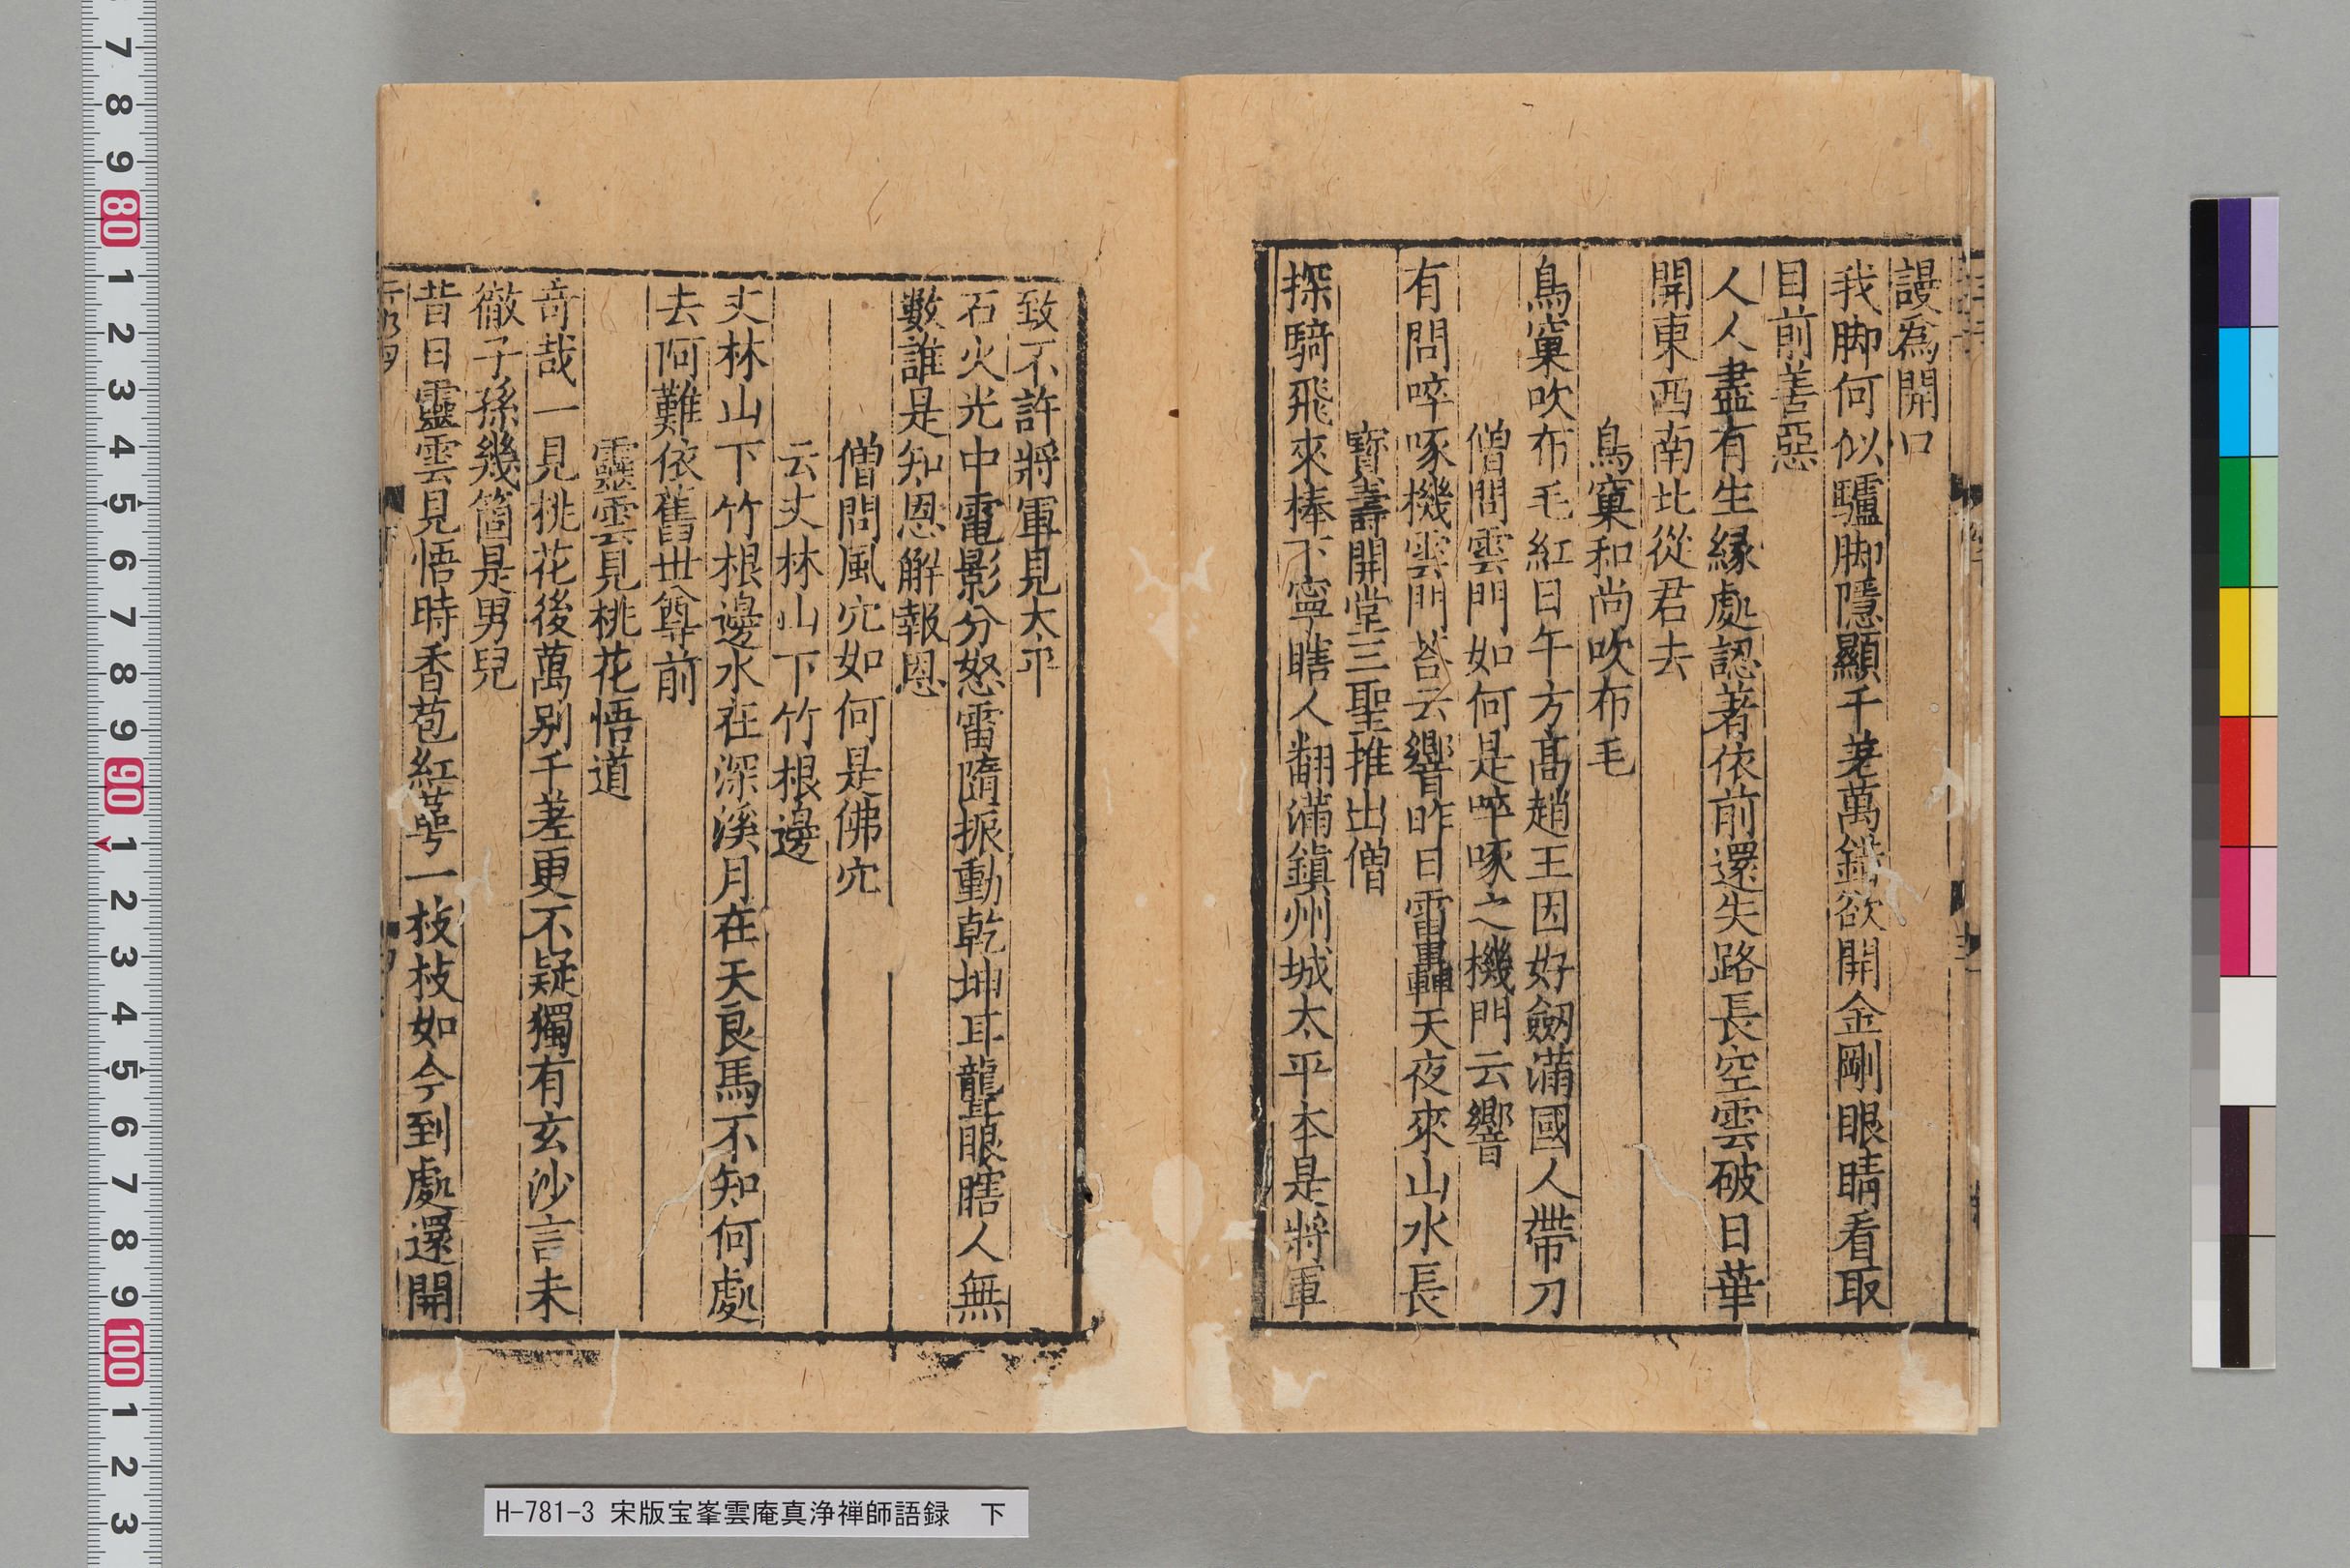 謾爲開口
我脚何似驢脚隱顯千差萬錯欲開金剛眼睛看取
目前善惡
人人盡有生緣處認著依前還失路長空雲破日華
開東西南北從君去
鳥窠和尚吹布毛
鳥窠吹布毛紅日午方髙趙王因好劒滿國人帶刀
僧問雲門如何是啐啄之機門云響
有問啐啄機雲門荅云響昨日雷轟天夜來山水長
寳壽開堂三聖推出僧
探騎飛來棒下寧瞎人翻滿鎮州城太平本是將軍
致不許將軍見太平
石火光中電影分怒雷隋振動乾坤耳聾眼瞎人無
數誰是知恩解報恩
僧問風穴如何是佛穴
云丈林山下竹根邊
丈林山下竹根邊水在深溪月在天良馬不知何處
去阿難依舊丗尊前
靈雲見桃花悟道
竒哉一見桃花後萬别千差更不疑獨有玄沙言未
徹子孫幾箇是男兒
昔日靈雲見悟時香苞紅萼一枝枝如今到處還開
H-781-3 宋版宝峯雲庵真浄禅師語録 下
7
8
9
80
1
2
3
4
5
6
7
8
9
90
1
2
3
4
5
6
7
8
9
100
1
2
3